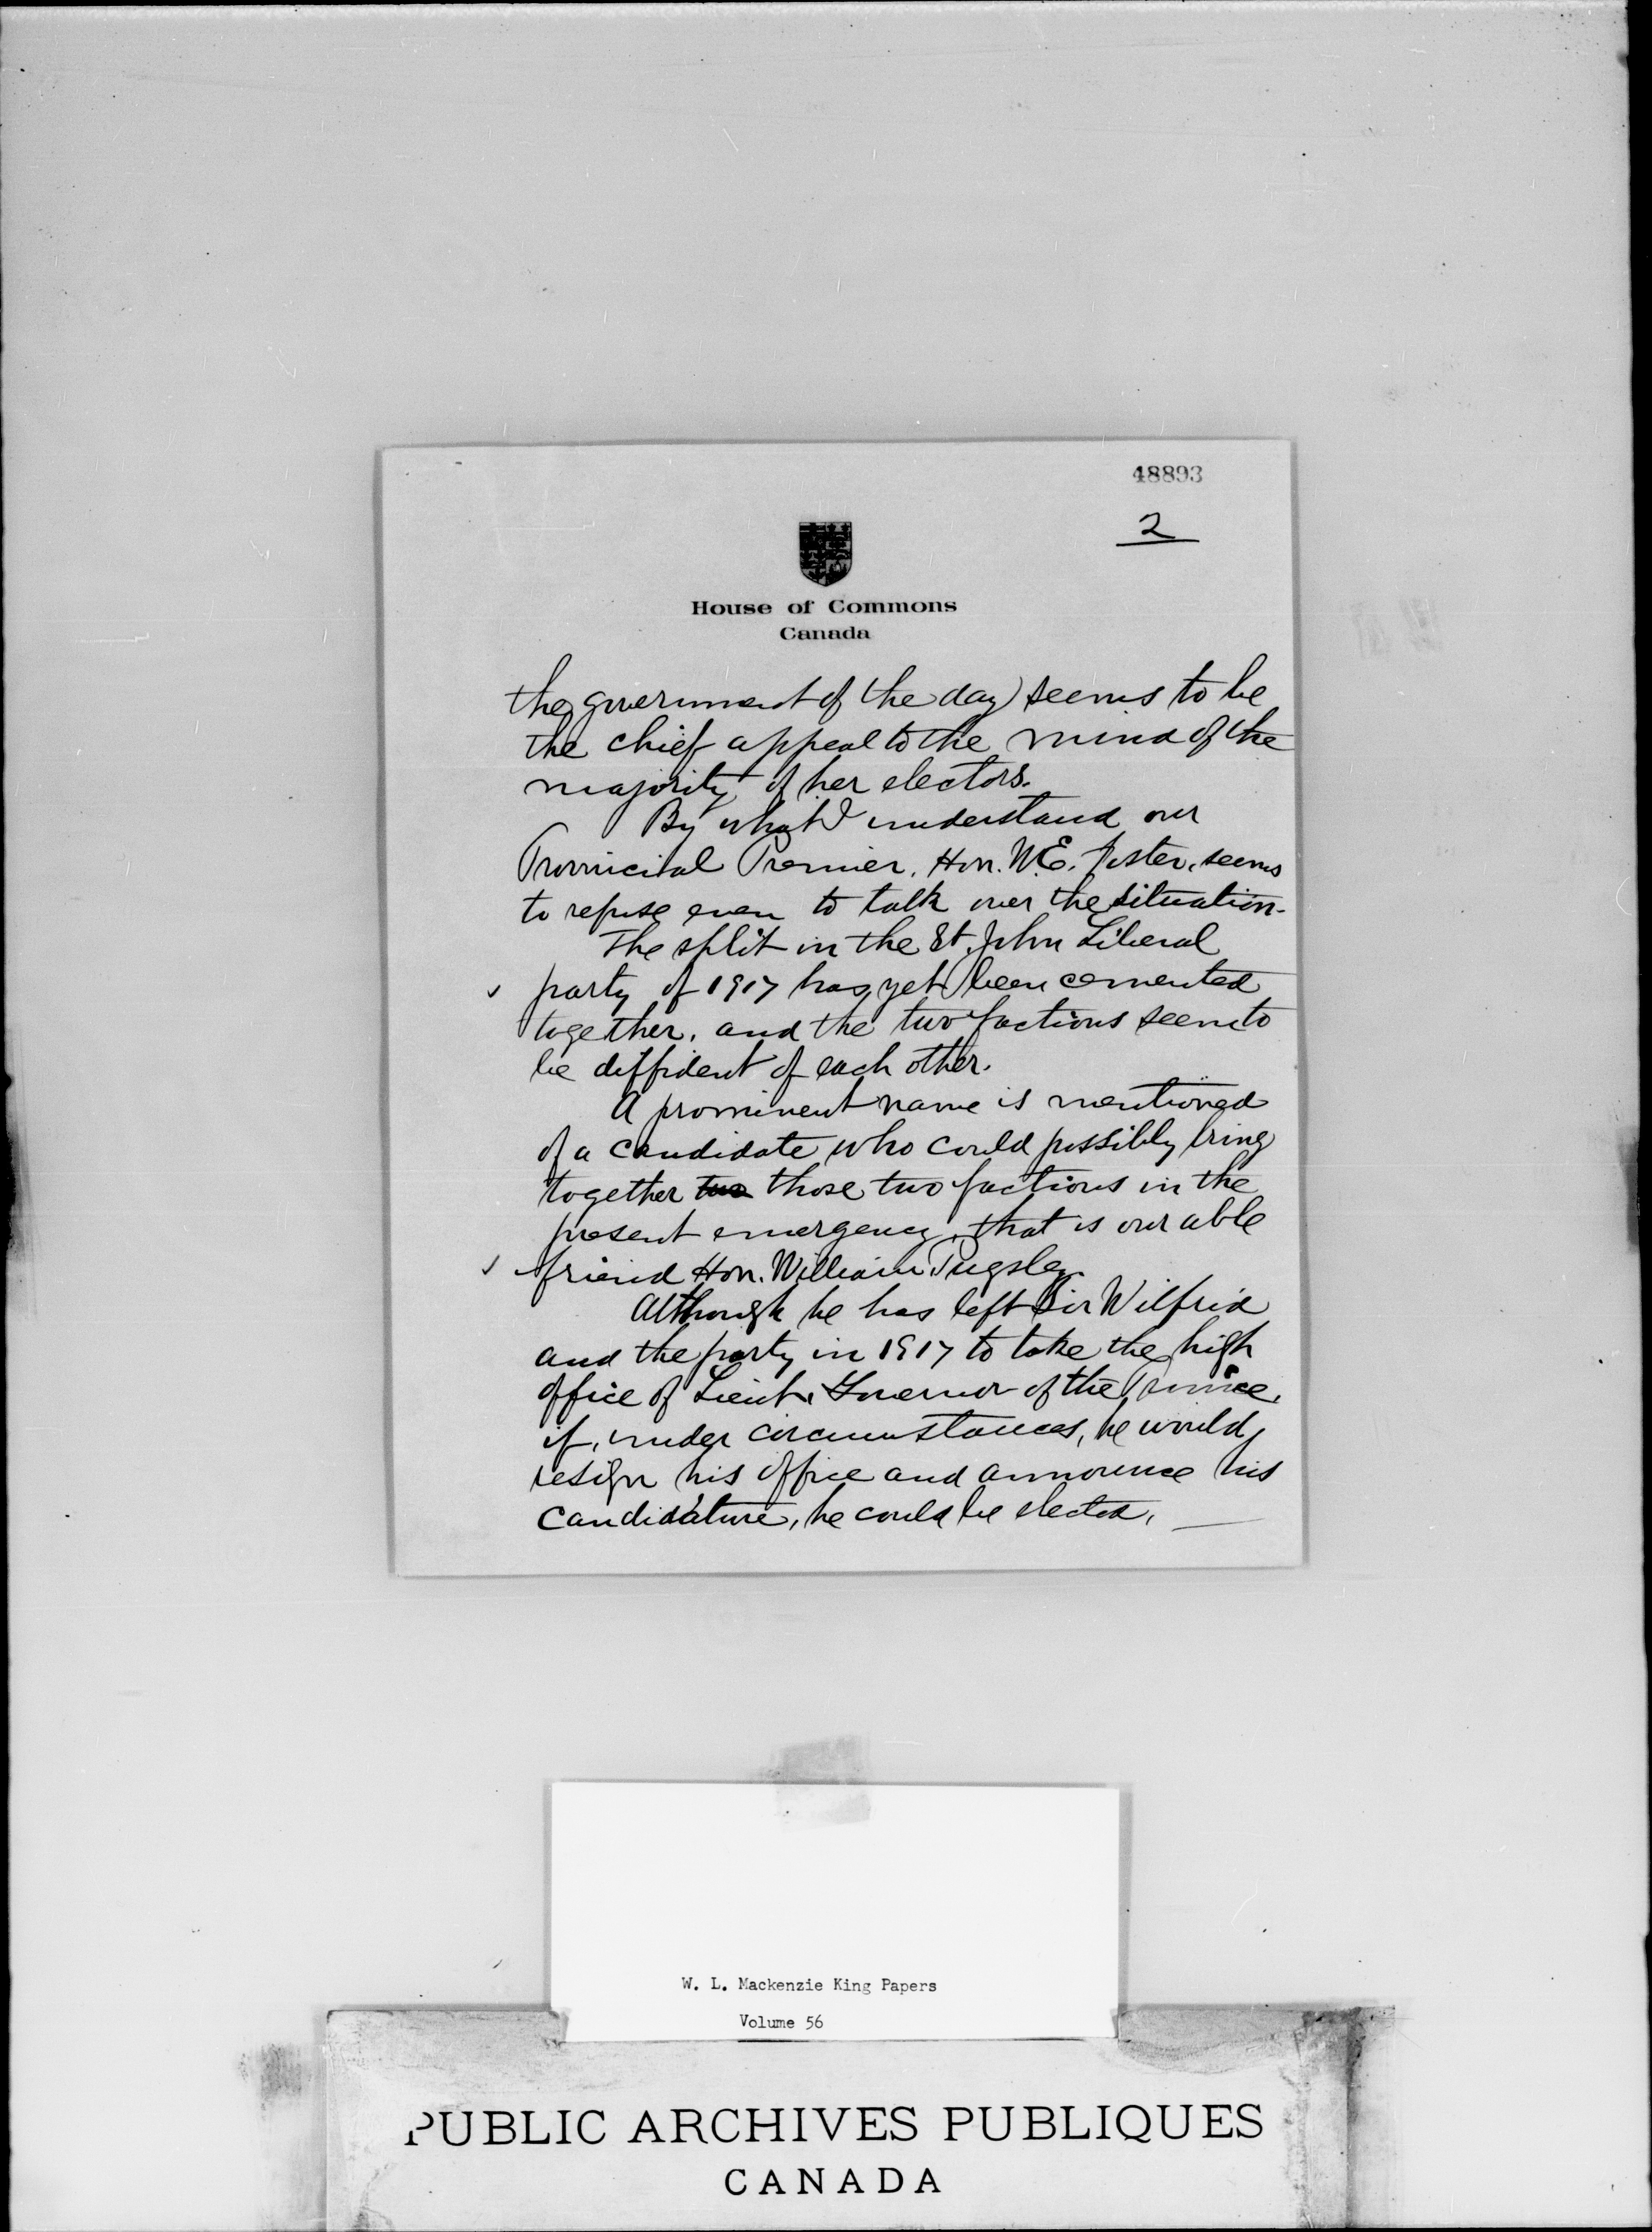 48893
2
House of Commons
Canada
the government of the day) seems to be
the chief appeal to the mind of the
majority of her electors.
By what I understand our
Provincial Premier, Hon. W.E. Foster, seems
to refuse even to talk over the situation.
The split in the St. John Liberal
✓ party of 1917 has yet been cemented
together, and the two factions seem to
be diffident of each other.
A prominent name is mentioned
of a candidate who could possibly bring
together two those two factions in the
present emergency, that is our able
✓ friend Hon. William Pugsley.
Although he has left Sir Wilfrid
and the party in 1917 to take the high
office of Lieut. Governor of the Province,
if, under circumstances, he would,
resign his office and announce his
candidature, he could be elected, —
W. L. Mackenzie King Papers
Volume 56
PUBLIC ARCHIVES PUBLIQUES
CANADA